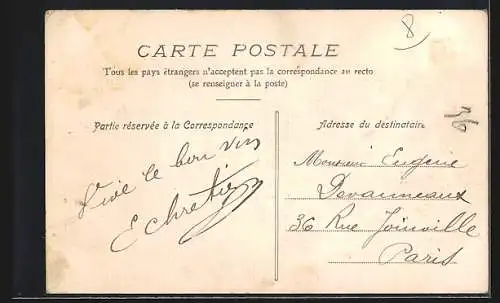 8
CARTE POSTALE
Tous les pays étrangers n'acceptent pas la correspondance au recto
(se renseigner à la poste)
Partie réservée à la Correspondance
Vive le bon vin
E Chretien
Adresse du destinataire
Monsieur Eugène
Davanneaux
36 Rue Joinville
Paris